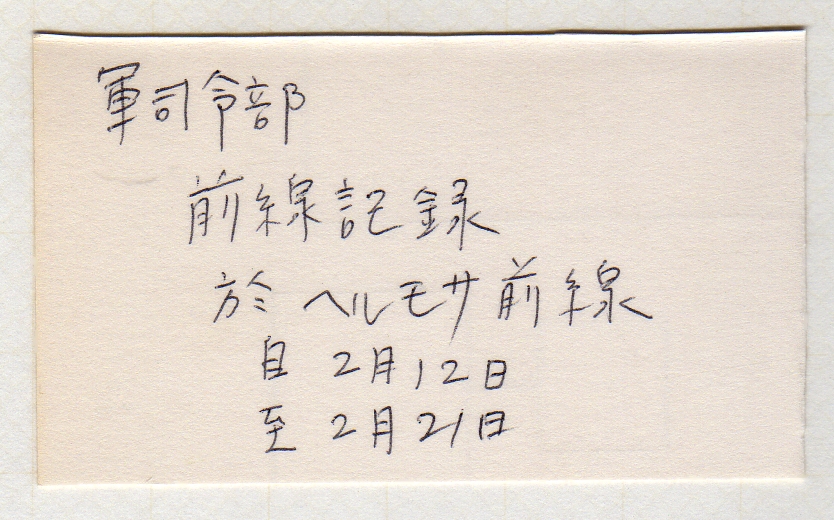 軍司令部
前線記録
於 ヘルモサ前線
自 2月12日
至 2月21日